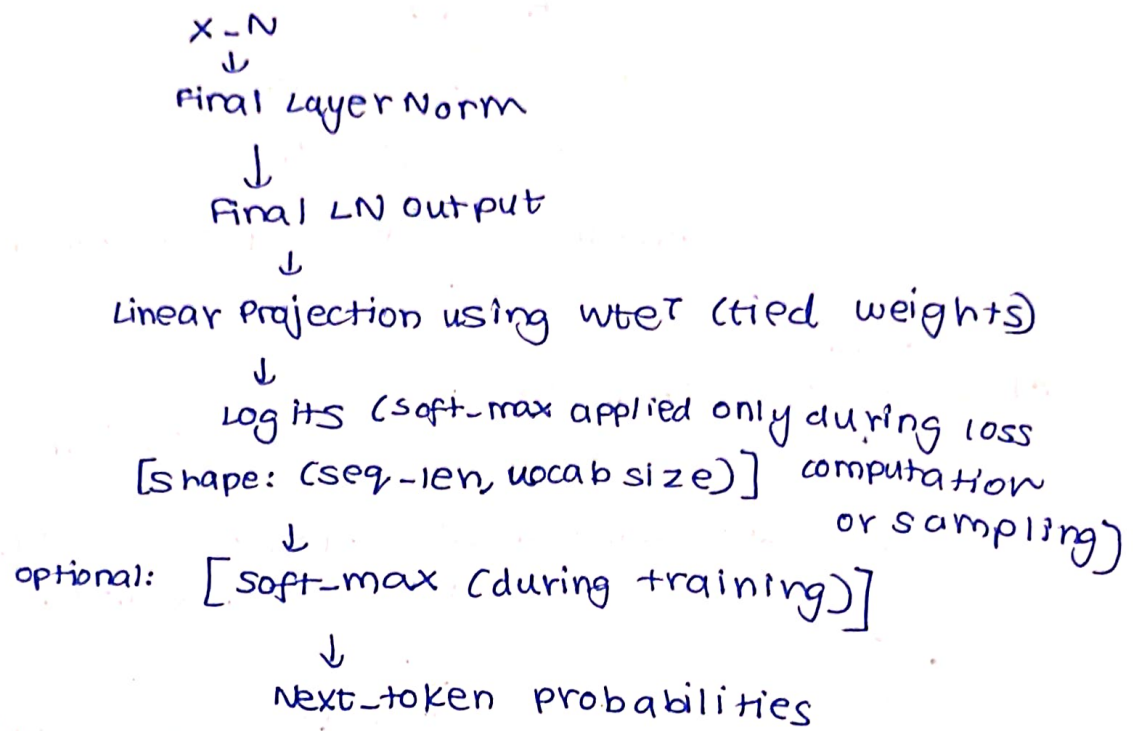 X_N
↓
Final LayerNorm
↓
Final LN output
↓
Linear Projection using wteT (tied weights)
↓
Logits (soft_max applied only during loss
[shape: (seq-len, vocab size)] computation
or sampling)
↓
optional: [soft_max (during training)]
↓
Next_token probabilities